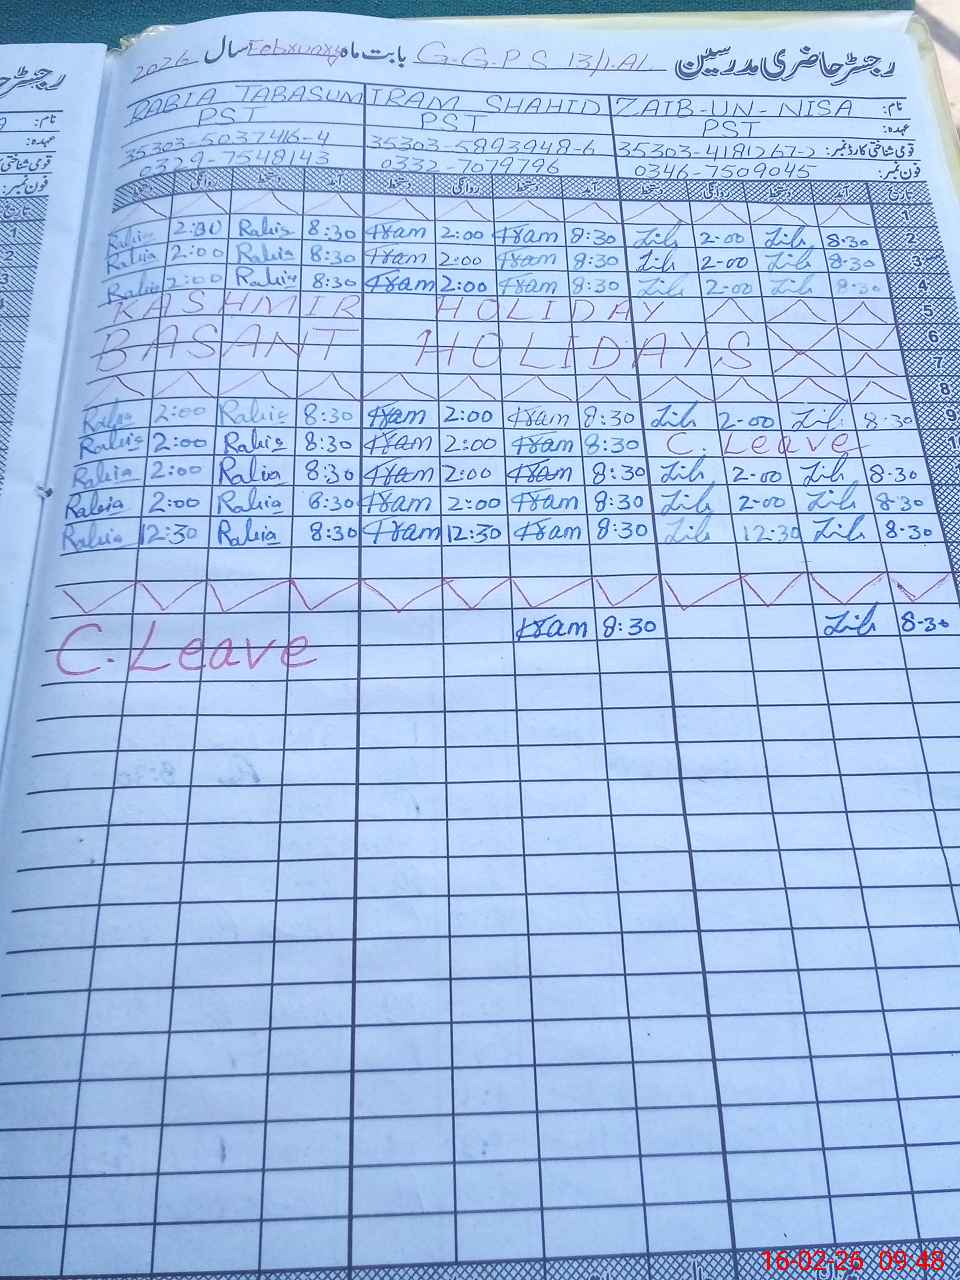 رجسٹر حاضری مدرسین G.G.P.S 13/1.AL بابت ماہ February سال 2026
نام: ZAIB-UN-NISA IRAM SHAHID RABIA TABASUM
عہدہ: PST PST PST
قومی شناختی کارڈ نمبر: 35303-4181267-2 35303-5893948-6 35303-5037416-4
فون نمبر: 0346-7509045 0332-7079796 0329-7548143
تاریخ آمد دستخط روانگی دستخط آمد دستخط روانگی دستخط آمد دستخط روانگی دستخط
1
Rabia 2:00 Rabia 8:30 Iram 2:00 Iram 8:30 Zib 2-00 Zib 8-30 2
Rabia 2:00 Rabia 8:30 Iram 2:00 Iram 8:30 Zib 2-00 Zib 8-30 3
Rabia 2:00 Rabia 8:30 Iram 2:00 Iram 8:30 Zib 2-00 Zib 8-30 4
KASHMIR HOLIDAY 5
BASANT HOLIDAYS 6
7
8
Rabia 2:00 Rabia 8:30 Iram 2:00 Iram 8:30 Zib 2-00 Zib 8-30 9
Rabia 2:00 Rabia 8:30 Iram 2:00 Iram 8:30 C. Leave
Rabia 2:00 Rabia 8:30 Iram 2:00 Iram 8:30 Zib 2-00 Zib 8-30
Rabia 2:00 Rabia 8:30 Iram 2:00 Iram 8:30 Zib 2-00 Zib 8-30
Rabia 12:30 Rabia 8:30 Iram 12:30 Iram 8:30 Zib 12-30 Zib 8-30
C. Leave Iram 8:30 Zib 8-30
16-02-26 09:48